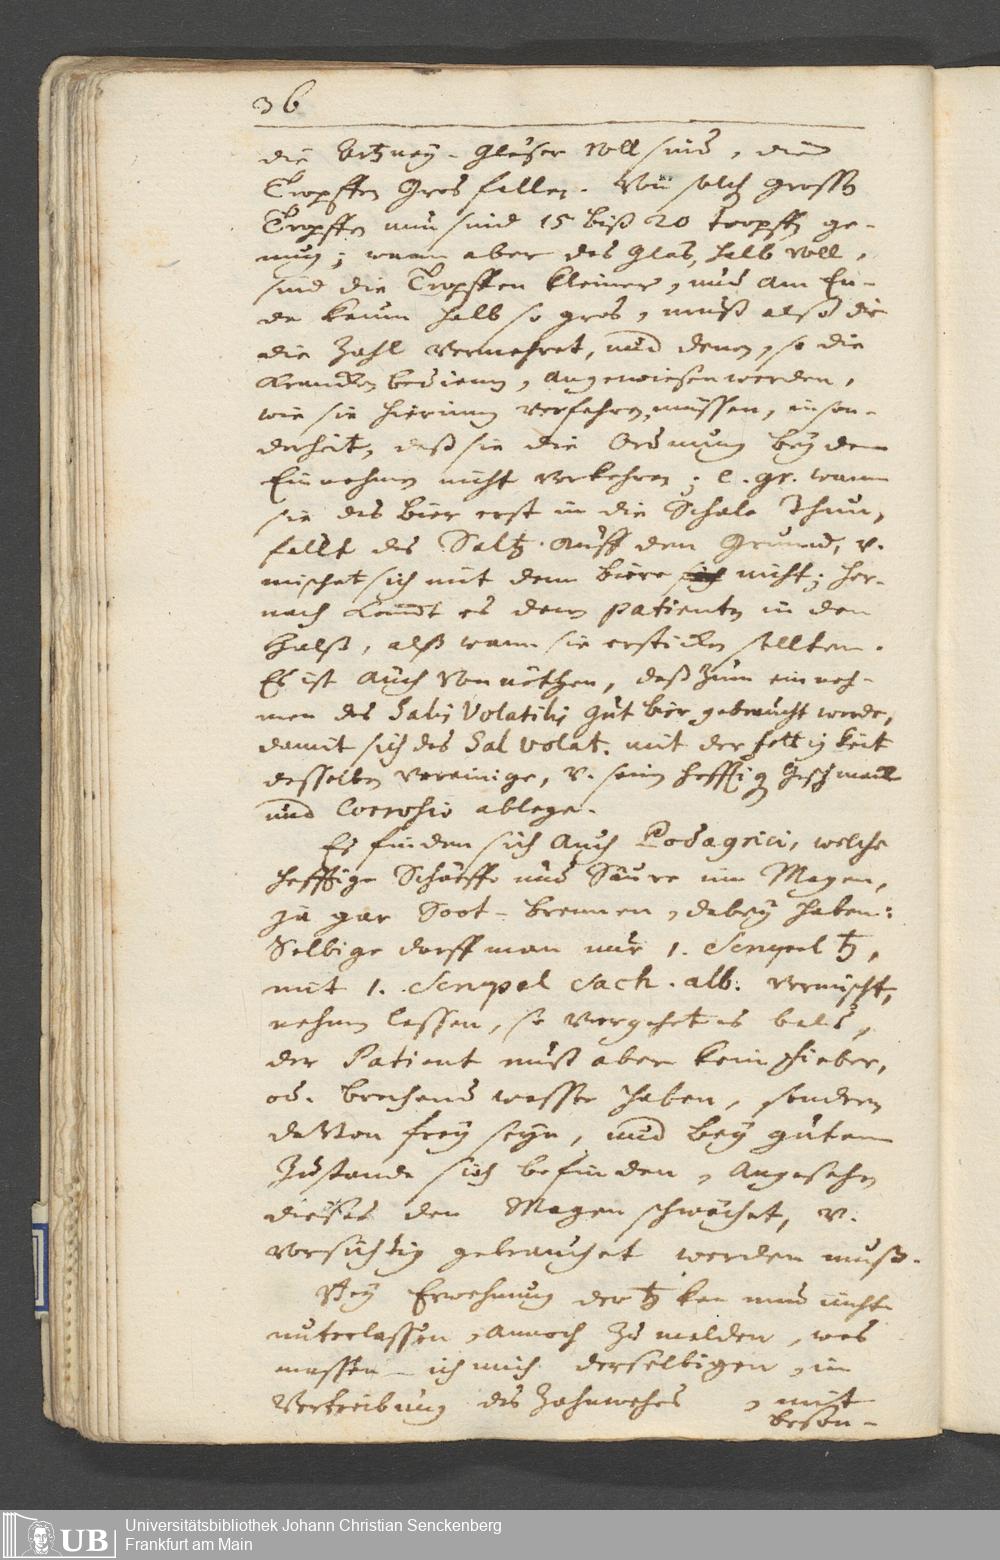 36
die Artzney-Gläser voll sind, die
Tropffen Gros fallen. Von solch grossen
Tropffen nun sind 15 biß 20 tropffen ge-
nug; wann aber das Glas halb voll,
sind die Tropffen kleiner, und am En-
de kaum halb so gros, muß also die
die Zahl vermehret, und denen, so die
Krancken bedienen, angewiesen werden,
wie sie hierinnen verfahren müssen, inson-
derheit, daß sie die Ordnung bey dem
Einnehmen nicht verkehren; e. gr. wann
sie das bier erst in die Schale thun,
fällt das Saltz auff den Grund, v.
mischet sich mit dem biere nicht; her-
nach kommt es dem patienten in den
Halß, alß wann sie ersticken sollten.
Es ist auch vonnöthen, daß zum einneh-
men des Salis Volatilis gut bier gebraucht werde,
damit sich das Sal volat. mit der fettigkeit
desselben vereinige, v. sein hefftigen Geschmack
und Corrosiv ablege.
Es finden sich auch Podagrici, welche
hefftige Schärffe und Säure im Magen,
ja gar Soot-brennen, dabey haben:
Selbige darff man nur 1. Scrupel ꜩ,
mit 1. Scrupel Sach. alb. vermischt,
nehmen lassen, so vergehet es bald,
der Patient muß aber kein Fieber,
od. brechend wesser haben, sondern
davon frey seyn, und bey gutem
Zustande sich befinden, angesehen
dieses den Magen schwächet, v.
vorsichtig gebrauchet werden muß.
Bey Erwehnung der ꜩ kan nun nicht
unterlassen, annoch zu melden, was
massen ich mich derselbigen, in
Vertreibung des Zahnwehes, mit
beson-
Universitätsbibliothek Johann Christian Senckenberg
Frankfurt am Main
UB